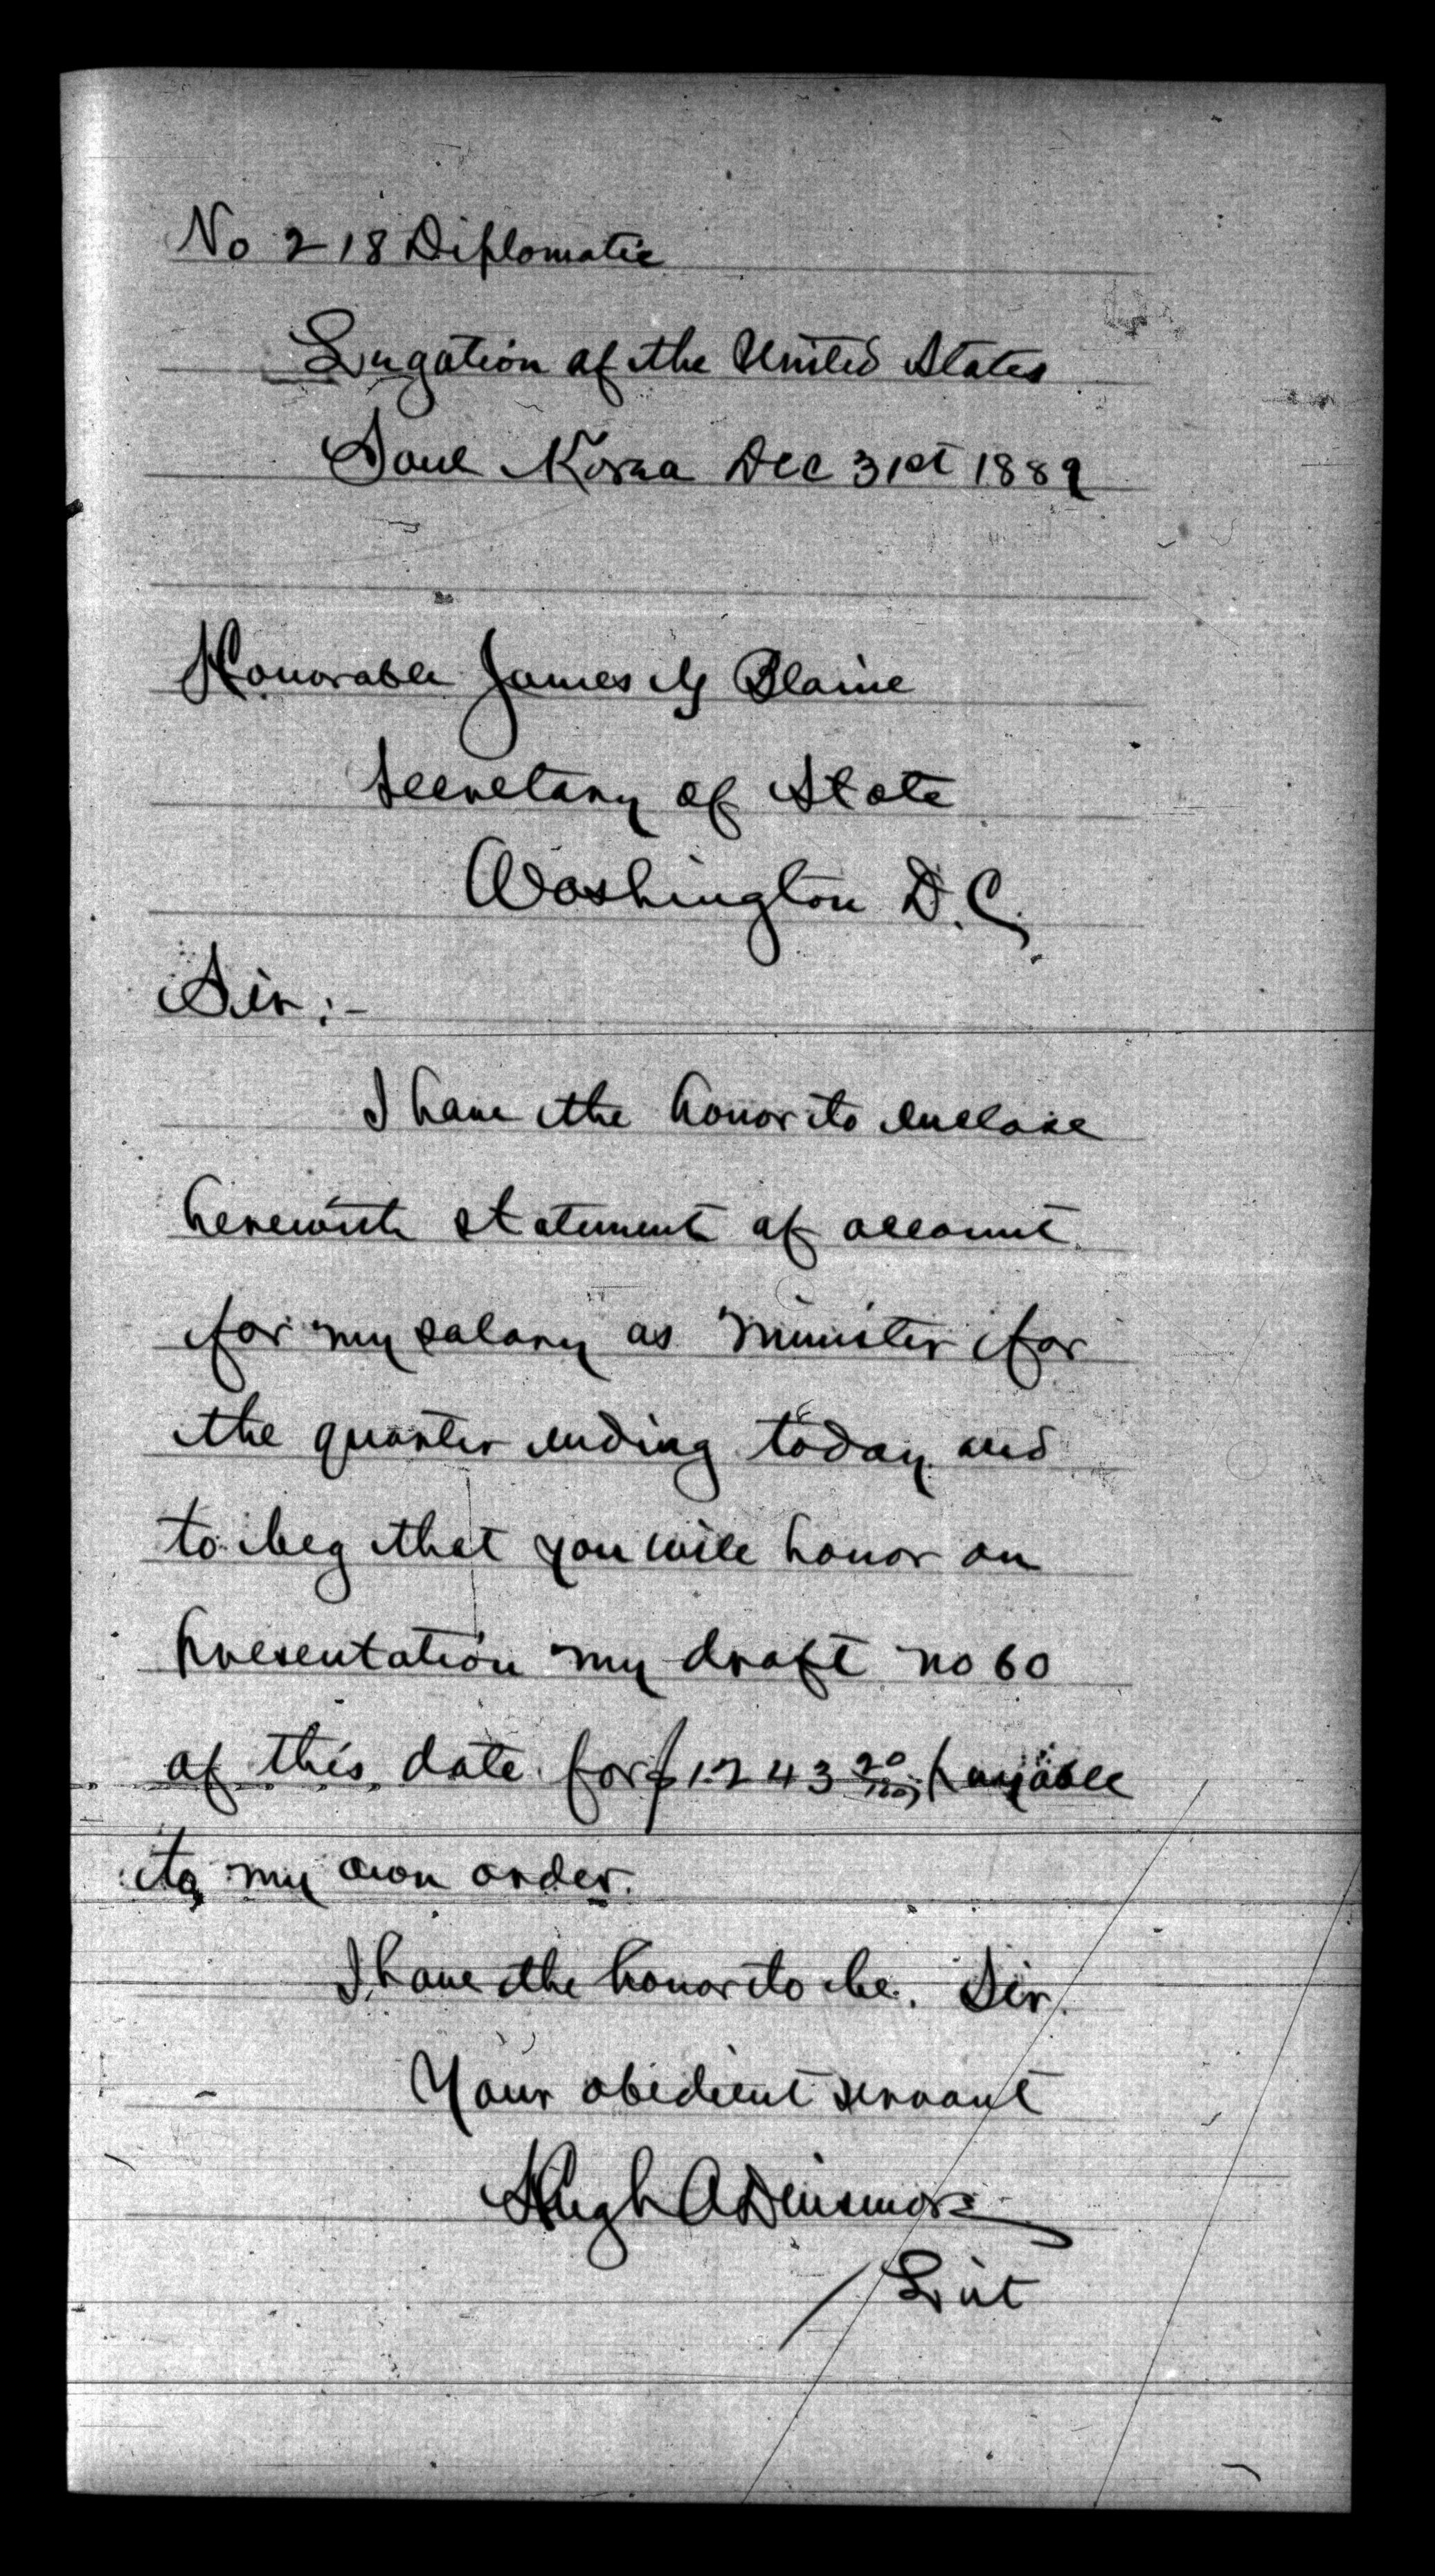 No 218 Diplomatic
Legation of the United States
Soul Korea Dec 31st 1889
Honorable James G Blaine
Secretary of State
Washington D.C.
Sir:-
I have the honor to enclose
herewith statement of account
for my salary as Minister for
the quarter ending today and
to beg that you will honor on
presentation my draft no 60
of this date for $1243 20/100, payable
to my own order.
I have the honor to be. Sir.
Your obedient servant
Hugh A Dinsmore